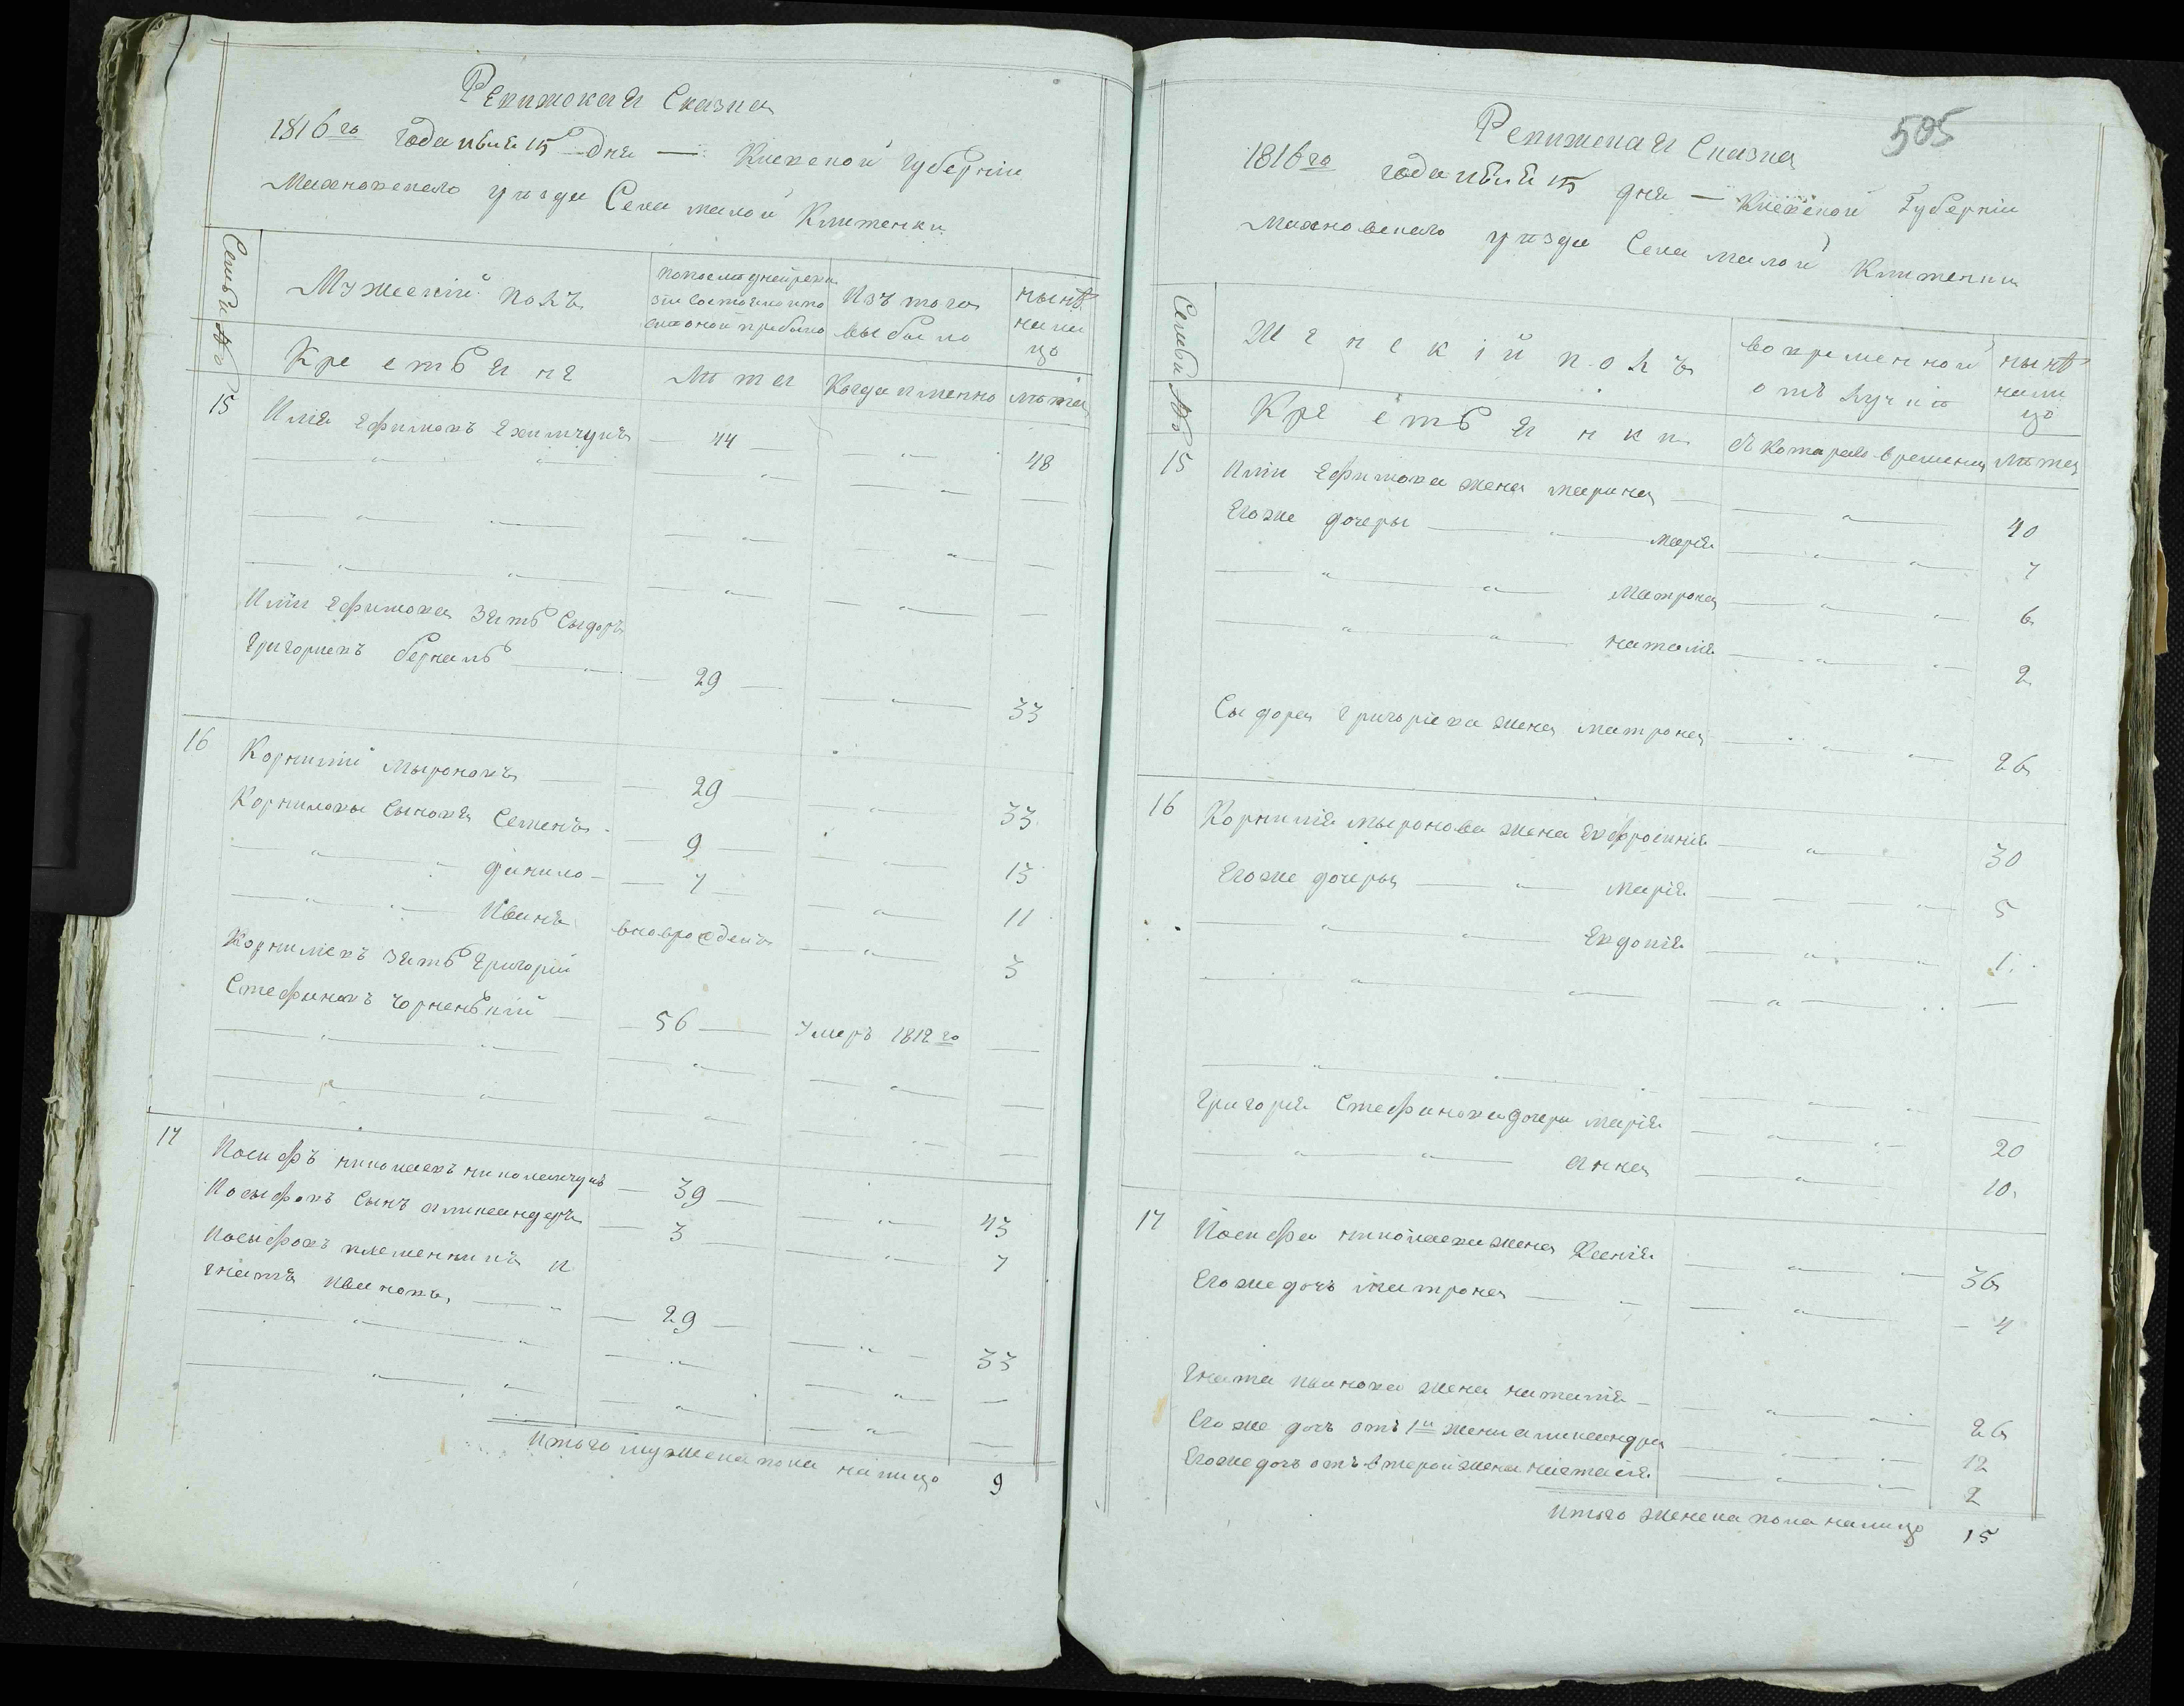 Ревижская Сказка
1816го года июня 15 дня — Киевской губерніи
Махновскаго уѣзда Села малой Клитенки
Семьи №
Мужескій полъ
по последней реви
зіи состояло и по
слѣ оной прибыло
Изъ того
выбыло
нынѣ
на ли
цо
Крестьяне
Лѣта
Когда именно
лѣта
15
Илія Ефимовъ Ехимчукъ — 44 — 48
Иліи Ефимова зять Сыдоръ
Григориевъ берналь — 29 — 33
16
Корнилій мыроновъ — 29 — 33
Корниловы сыновья Семенъ — 9 — 13
данило — 7 — 11
Иванъ вноврожденъ — 3
Корниліевъ зять Григорій
Стефановъ Чорненькій — 56 — умеръ 1812го —
17
Иосифъ николаевъ николайчукъ — 39 — 43
Иосыфовъ сынъ александеръ — 3 — 7
Иосыфовъ племенникъ и
гнатъ ивановъ — 29 — 33
Итого мужеска пола на лицо 9
505
Ревижская Сказка
1816го года июня 15 дня — Киевской Губерніи
Махновскаго уѣзда Села малой Клитенки
Семьи №
Женскій полъ
во временной
отлучкѣ
нынѣ
на ли
цо
Крестьянки
съ котораго времени
лѣта
15
Иліи Ефимова жена марина — 40
Егоже дочеры — марія — 7
Матрона — 6
наталія — 2
Сыдора григоріева жена матрона — 26
16
Корнилія мыронова жена Евфросинія — 30
Егоже дочеры — марія — 5
Евдокія — 1
Григорія Стефанова дочери марія — 20
анна — 10
17
Иосифа николаева жена Ксенія — 36
Егоже дочь матрона — 4
Гната иванова жена наталія — 26
Его же дочь отъ 1й жены александра — 12
Егоже дочь отъ второй жены настасія — 2
Итого женска пола на лицо 15